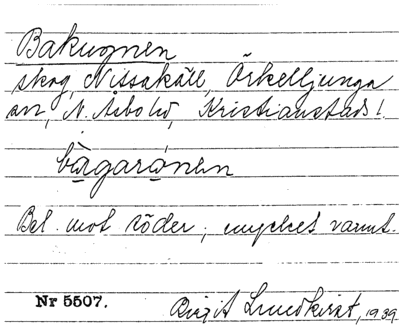 Bakugnen
skog, Nissakäll, Örkelljunga
sn, N. Åsbo hd, Kristianstads l.
bagaronen
Bel. mot söder, mycket varmt.
Nr 5507.
Birgit Lundkvist, 1939